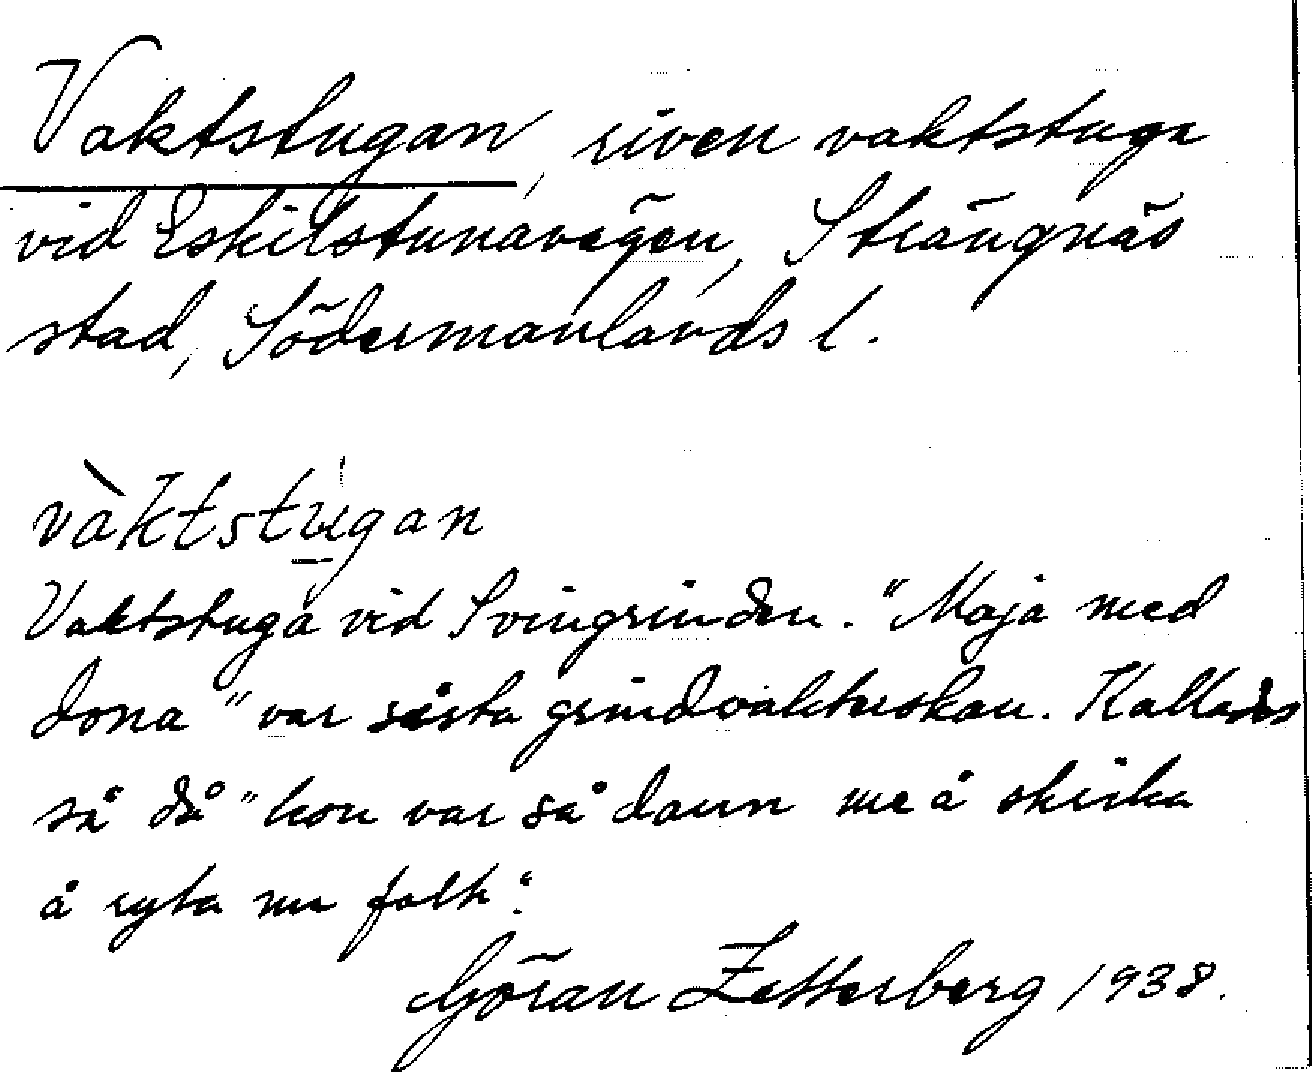 Vaktstugan, riven vaktstuga
vid Eskilstunavägen, Strängnäs
stad, Södermanlands l.
vàktstu̱gan
Vaktstuga vid Svingrinden. "Maja med
dona" var sista grindvakterskan. Kallades
så då "hon var så dann me å skrika
å ryta me folk".
Göran Zetterberg 1938.